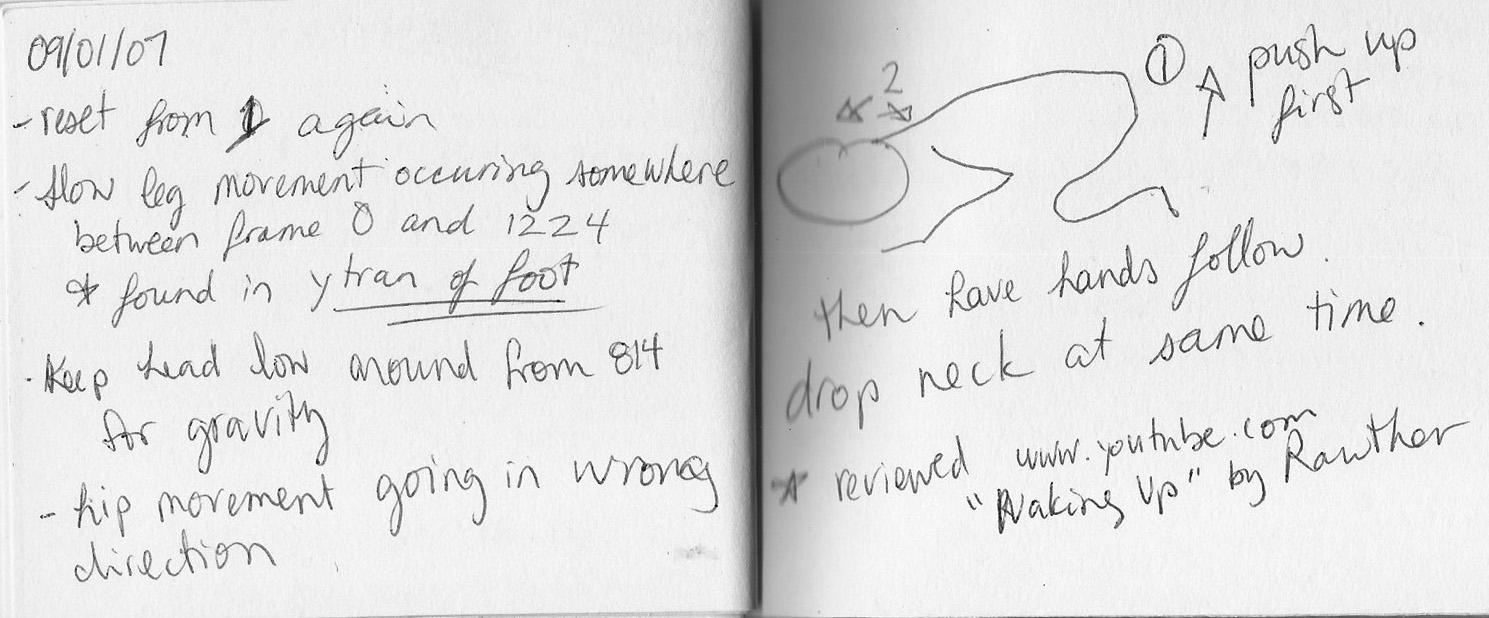 09/01/07
- reset from 1 again
- slow leg movement occuring somewhere
between frame 0 and 1224
* found in y tran of foot
- Keep head low around from 814
for gravity
- hip movement going in wrong
direction
① ↑ push up
first
2
then have hands follow.
drop neck at same time.
* reviewed www.youtube.com
"Waking Up" by Rawther